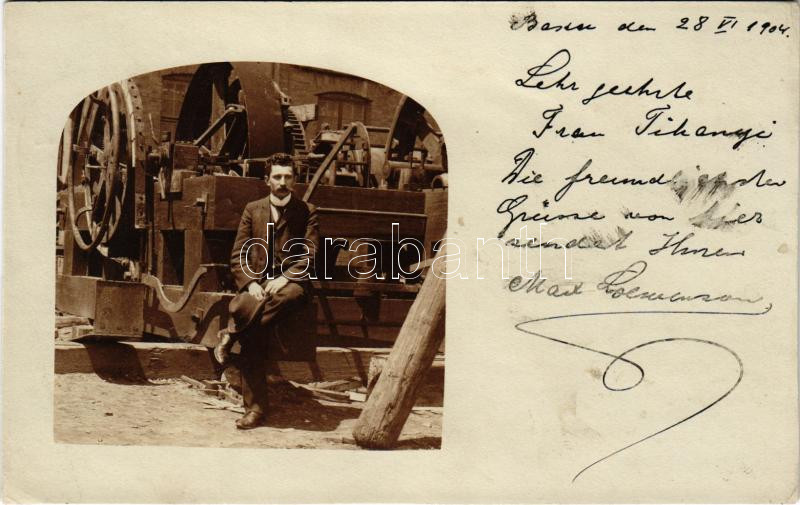 Baku den 28 VI 1904.
Sehr geehrte
Frau Tihanyi
Die freundlichsten
Grüsse von hier
sendet Ihnen
Max Loewenson
darabanth.com